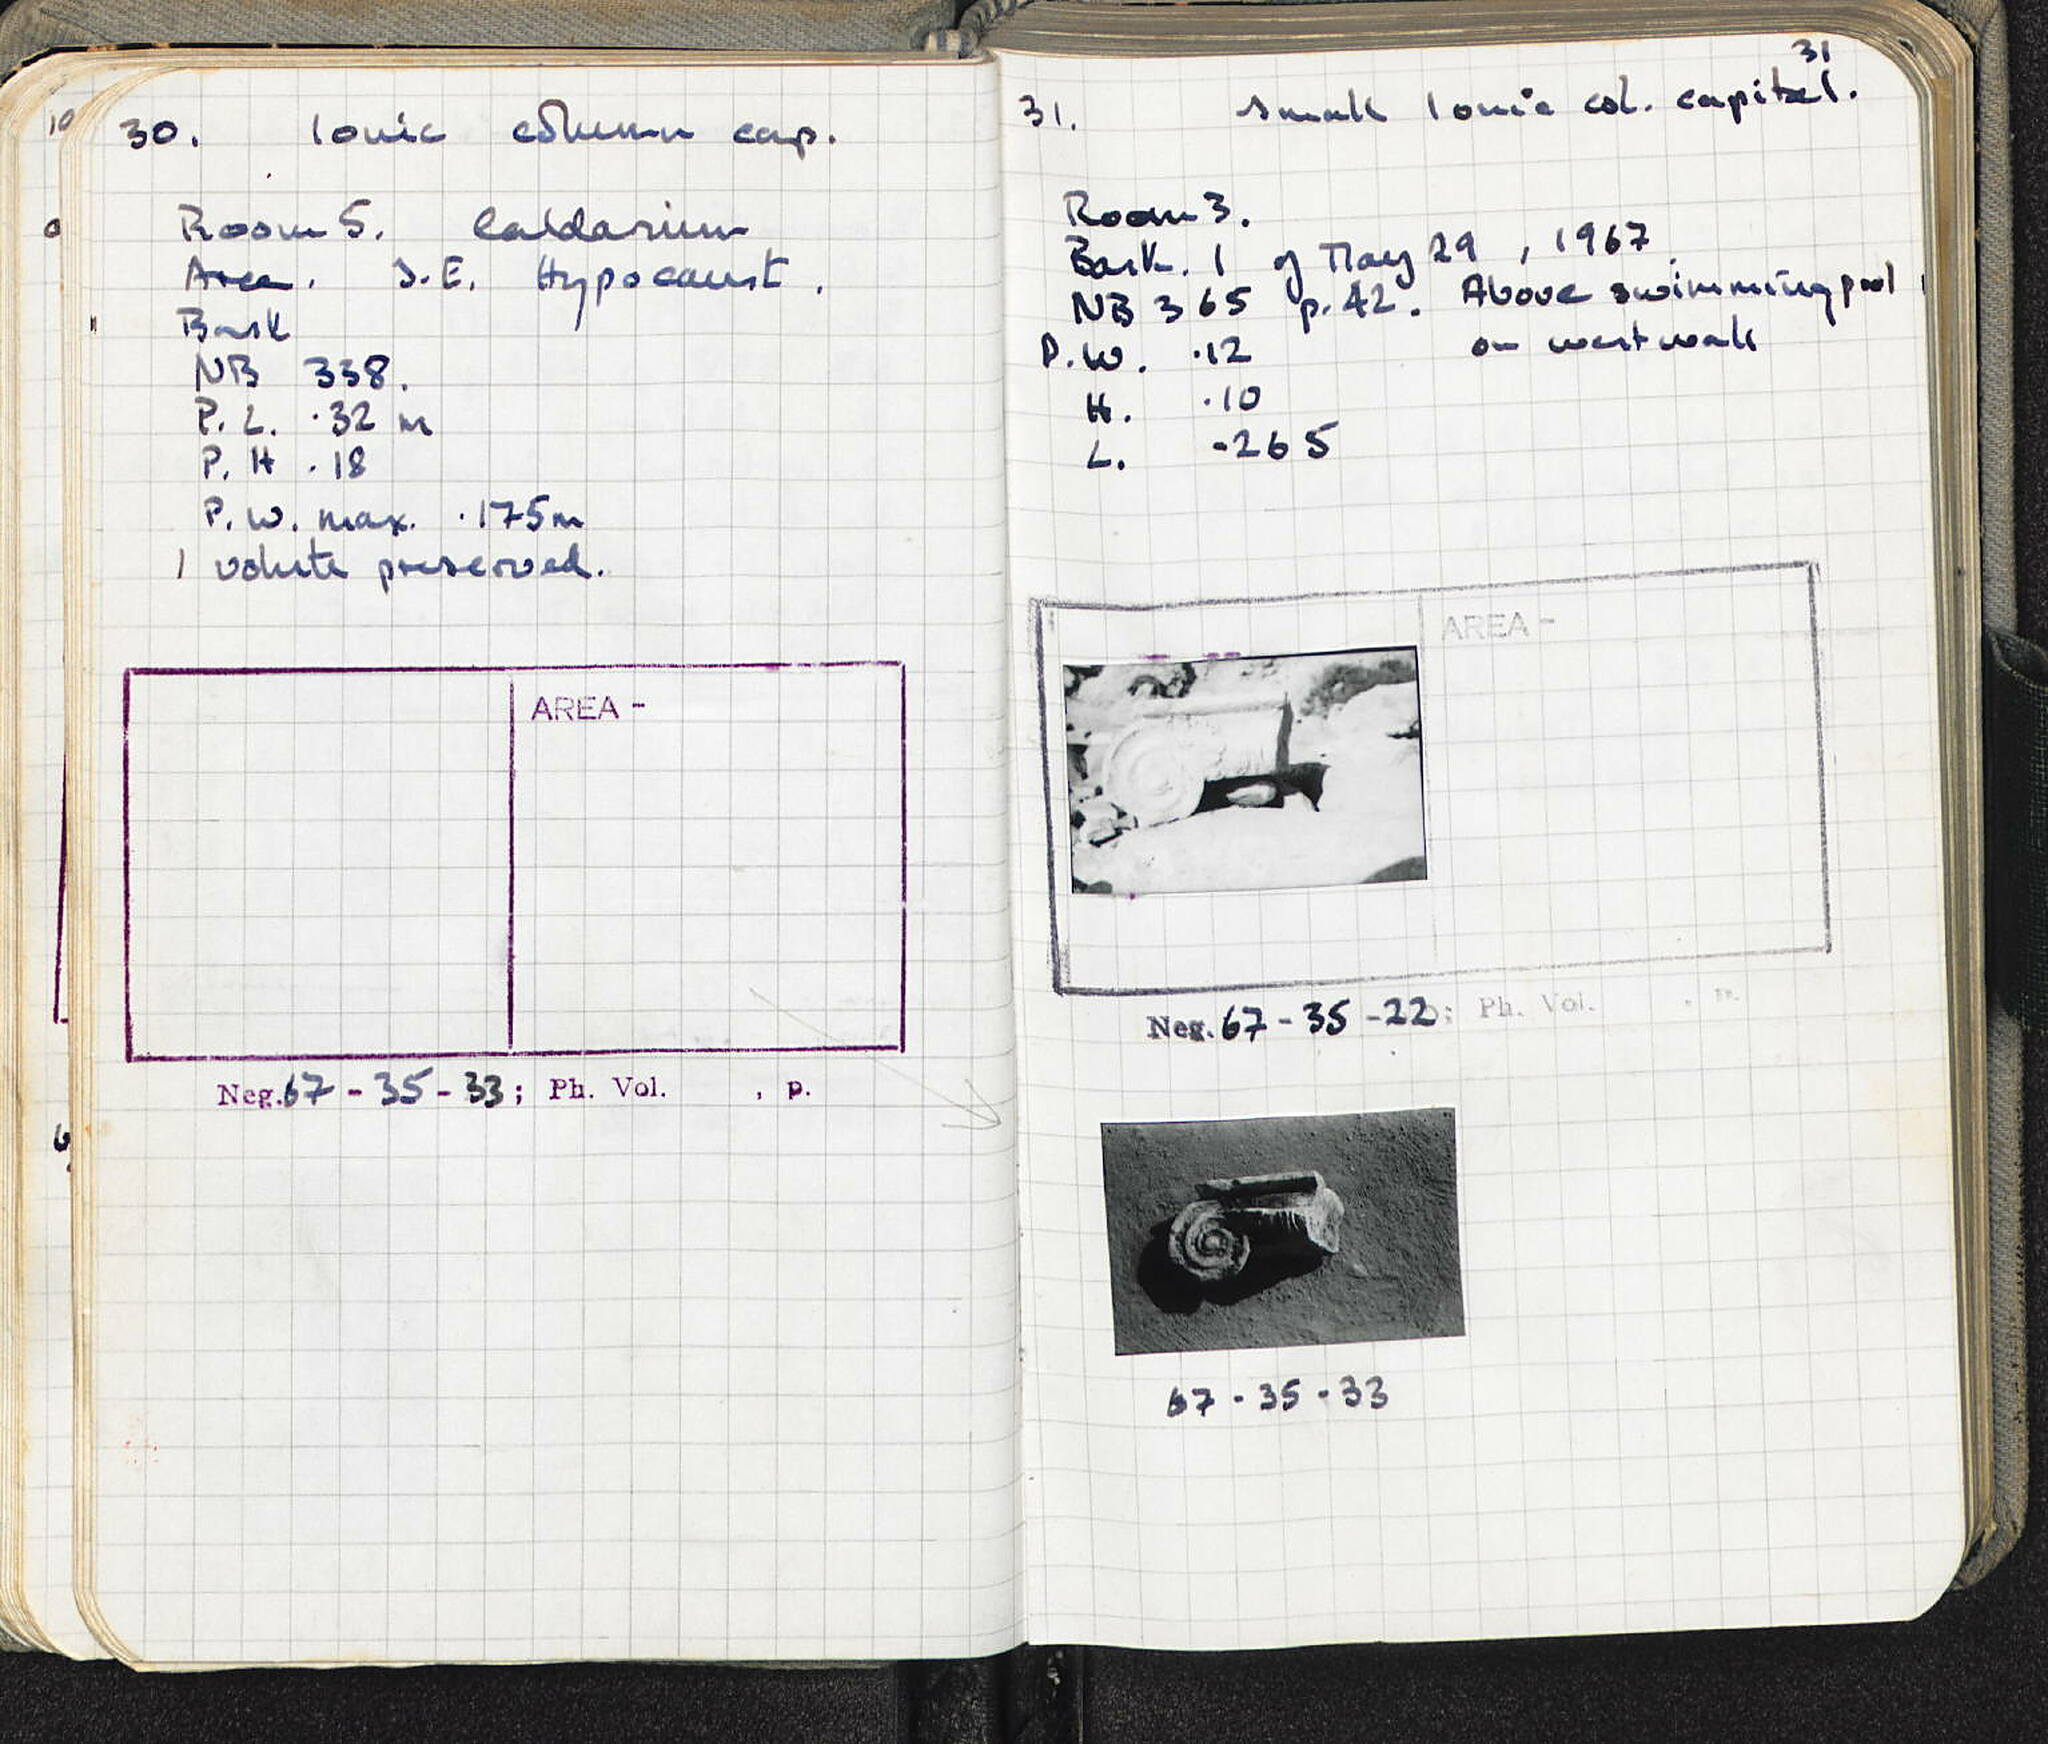 30. Ionic column cap.
Room 5. Caldarium
Area. S.E. Hypocaust.
Bask
NB 338.
P.L. .32 m
P.H .18
P.W. max. .175m
1 volute preserved.
AREA -
Neg. 67 - 35 - 33; Ph. Vol. , p.
31
31. Small Ionic col. capital.
Room 3.
Bask. 1 of May 29, 1967
NB 365 p. 42. Above swimming pool
on west wall
P.W. .12
H. .10
L. .265
AREA -
Neg. 67 - 35 - 22; Ph. Vol. , p.
67 - 35 - 33